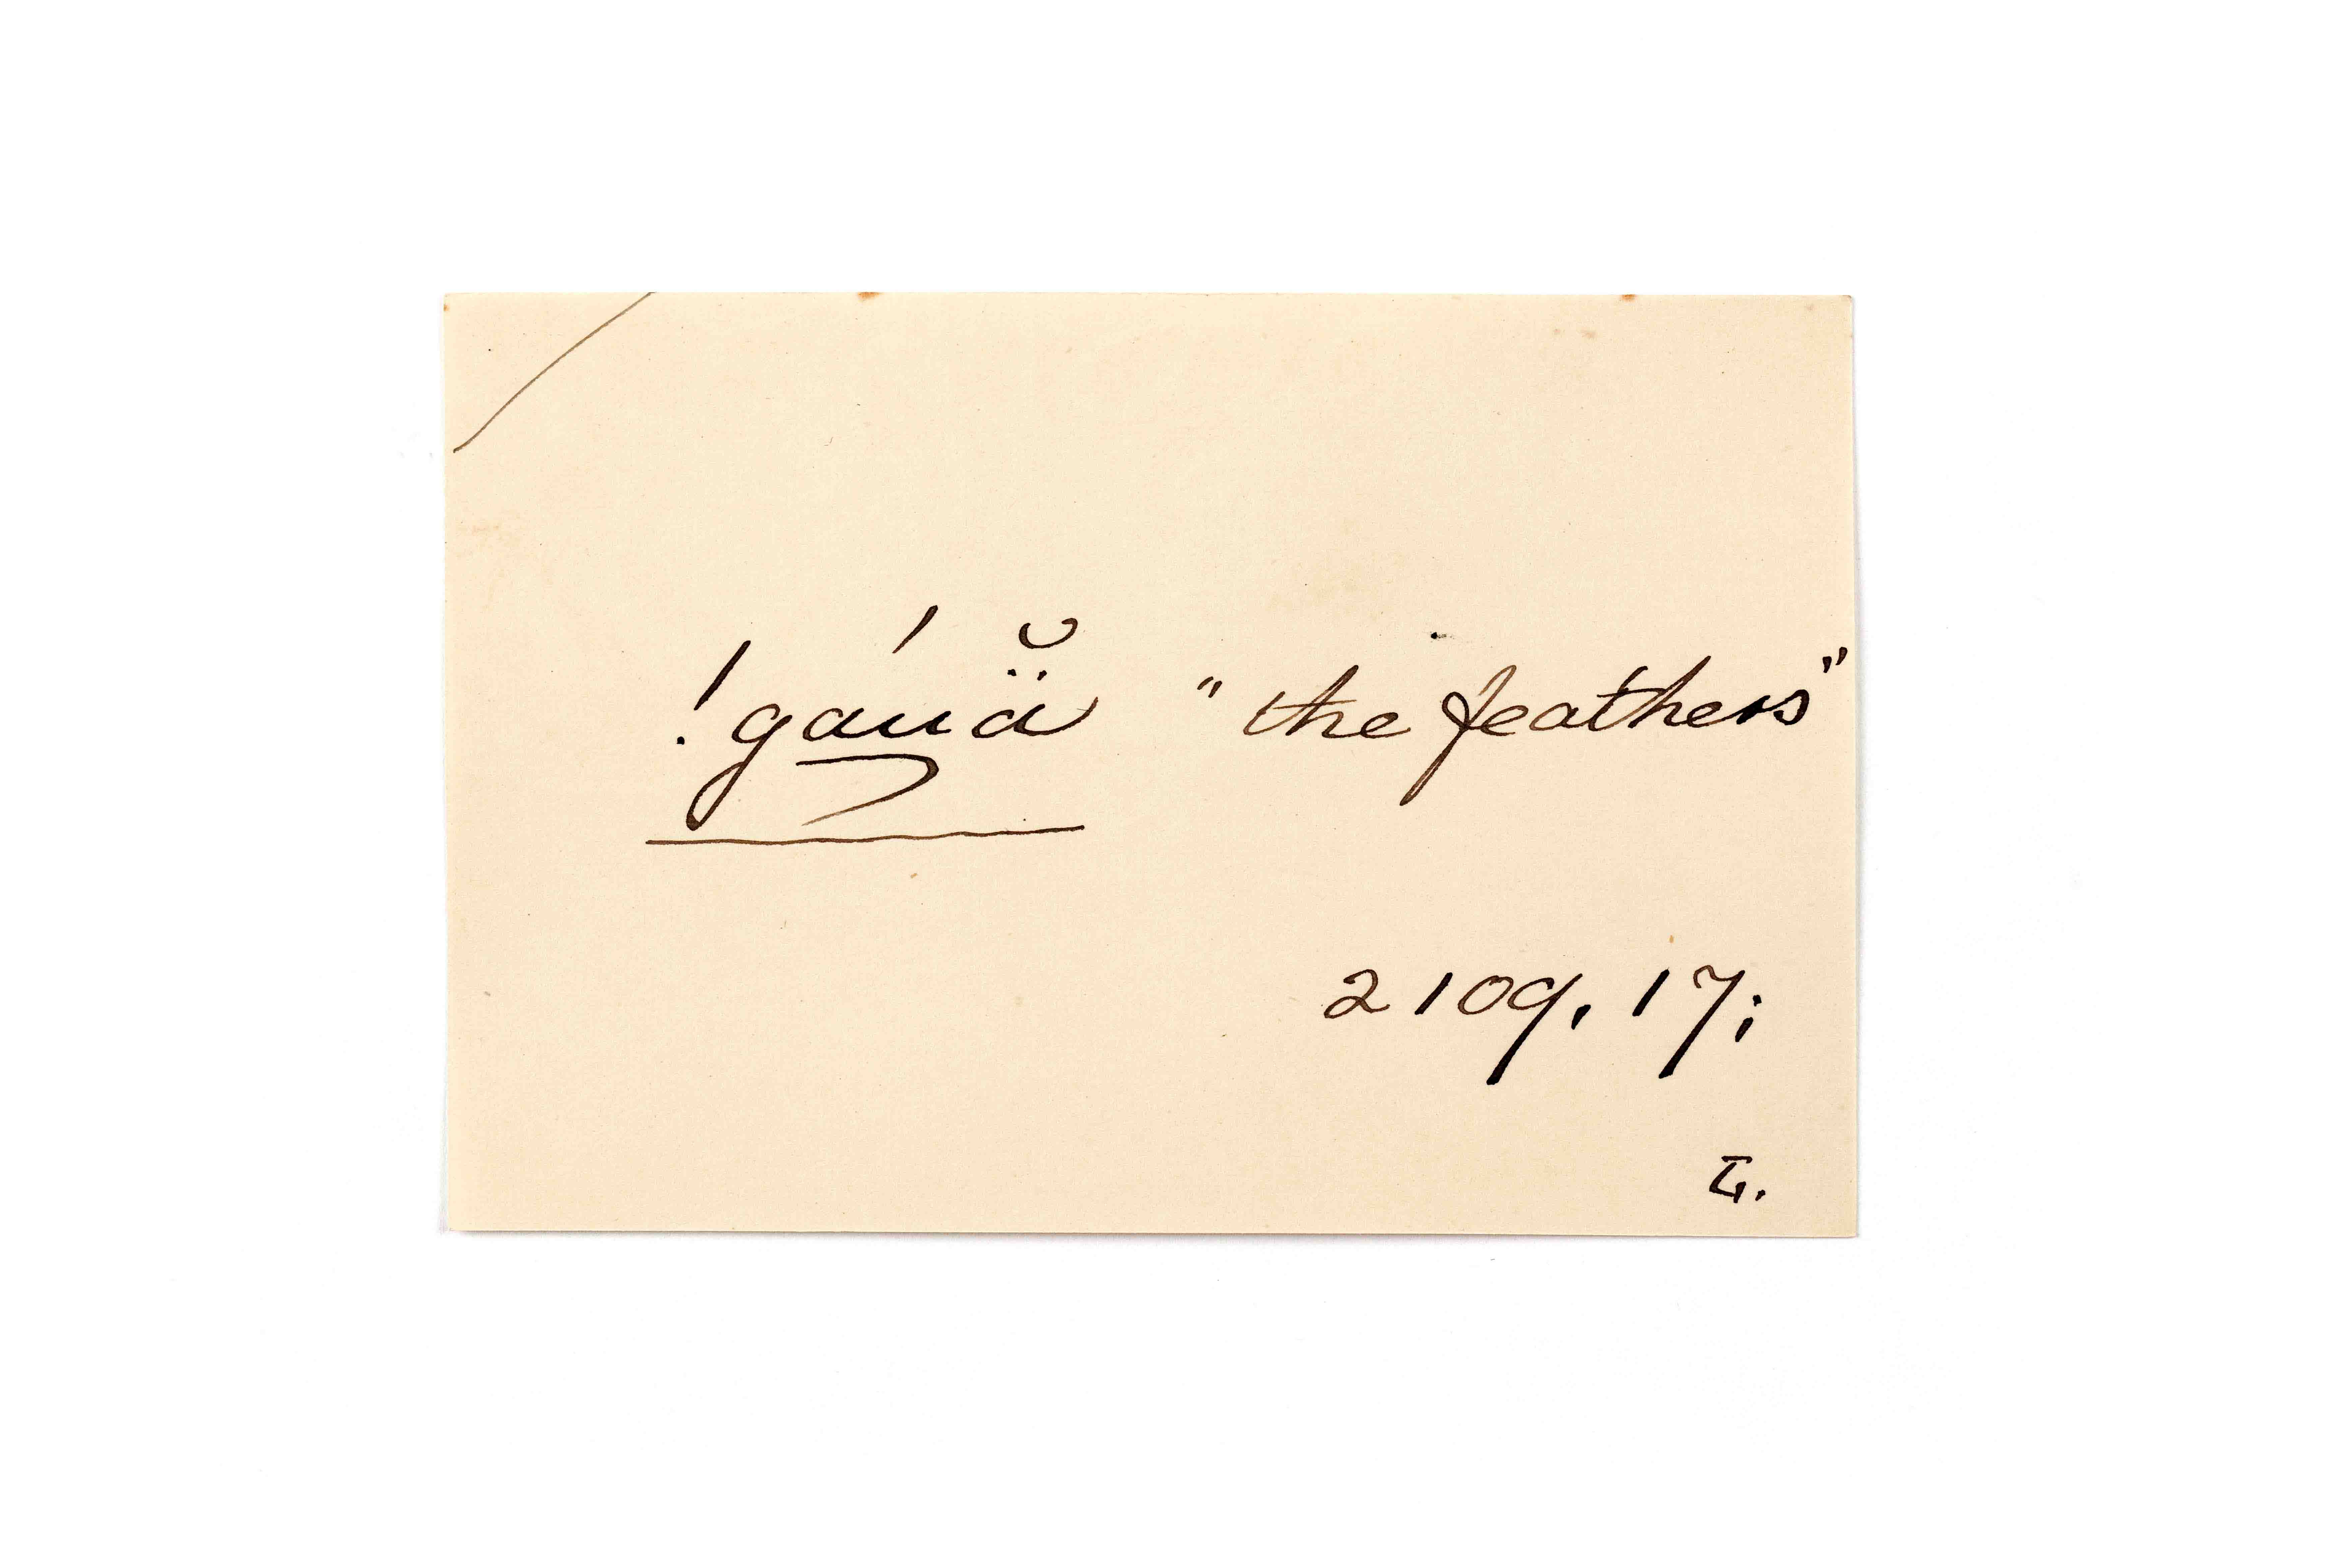 !gáuä̆ "the feathers"
2109, 17;
L.